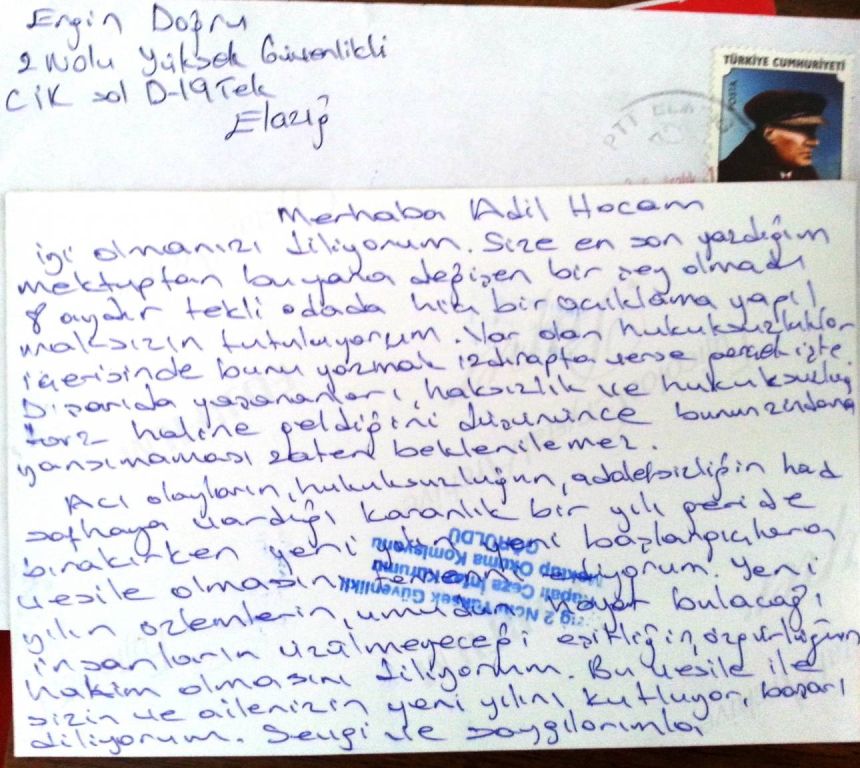 Ergin Doğru
2 Nolu Yüksek Güvenlikli
CİK sol D-19 Tek
Elazığ
TÜRKİYE CUMHURİYETİ
POSTA
PTT ELA
Merhaba Adil Hocam
iyi olmanızı diliyorum. Size en son yazdığım
mektuptan bu yana değişen bir şey olmadı
8 aydır tekli odada hiç bir açıklama yapıl
maksızın tutuluyorum. Var olan hukuksuzluklar
içerisinde bunu yazmak ızdırapta verse gerçek işte.
Dışarıda yaşananları, haksızlık ve hukuksuzluğu
tarz haline geldiğini düşününce bunun zindana
yansımaması zaten beklenilemez.
Acı olayların, hukuksuzluğun, adaletsizliğin had
safhaya vardığı karanlık bir yılı geride
bırakırken yeni yılın yeni başlangıçlara
vesile olmasını temenni ediyorum. Yeni
yılın özlemlerin, umudun hayat bulacağı
insanların üzülmeyeceği eşitliğin, özgürlüğün
hakim olmasını diliyorum. Bu vesile ile
sizin ve ailenizin yeni yılını kutluyor, başarı
diliyorum. Sevgi ve saygılarımla
2 Nolu Yüksek Güvenlikli
Kapalı Ceza İnfaz Kurumu
Mektup Okuma Komisyonu
GÖRÜLDÜ